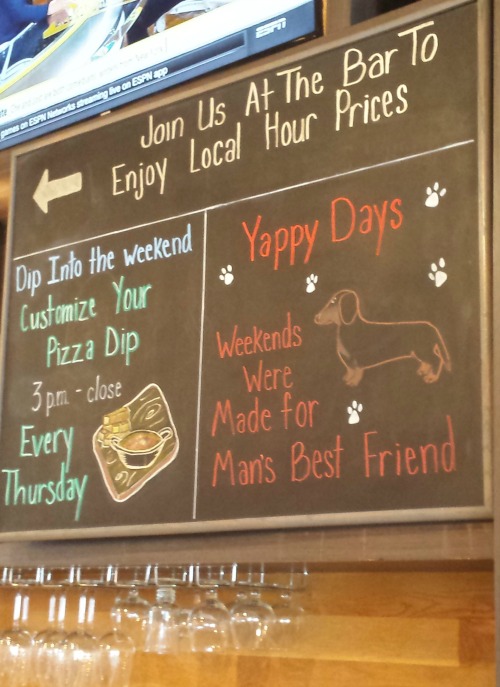 ESPN
games on ESPN Networks streaming live on ESPN app
Join Us At The Bar To
Enjoy Local Hour Prices
Dip Into the weekend
Customize Your
Pizza Dip
3 p.m. - close
Every
Thursday
Yappy Days
Weekends
Were
Made for
Man's Best Friend